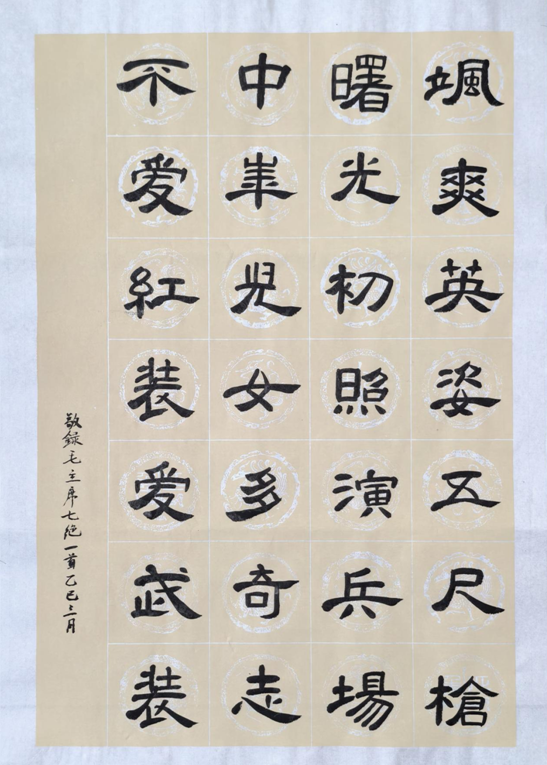 颯爽英姿五尺槍
曙光初照演兵場
中華兒女多奇志
不爱紅装爱武装
敬録毛主席七絶一首乙巳三月